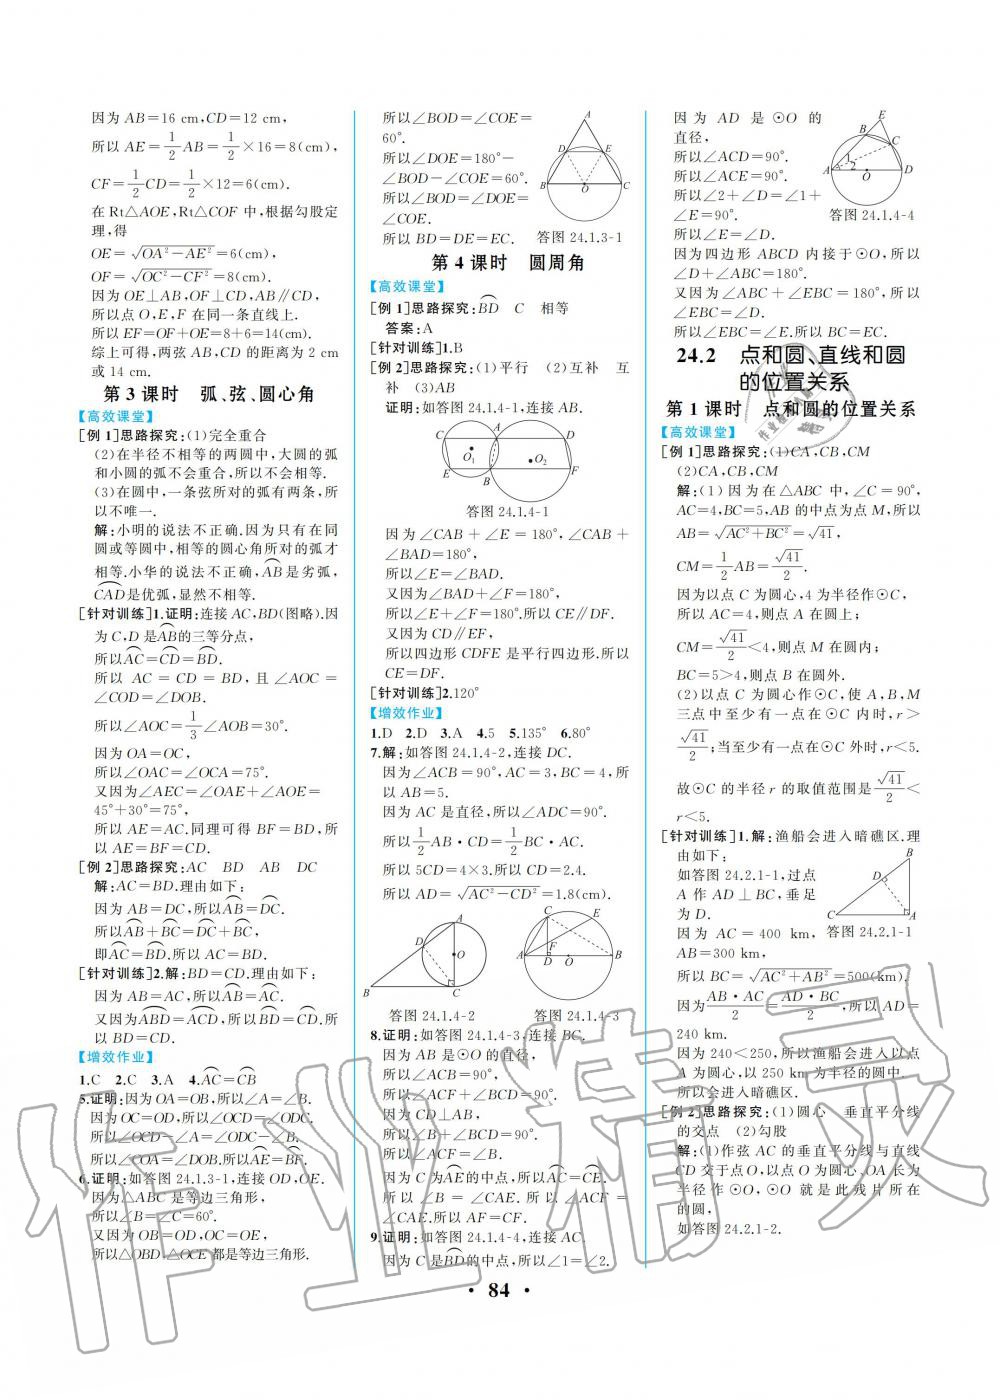 因为 AB=16 cm,CD=12 cm,
所以 AE=1/2AB=1/2×16=8(cm).
CF=1/2CD=1/2×12=6(cm).
在 Rt△AOE,Rt△COF 中,根据勾股定
理,得
OE=√(OA²-AE²)=6(cm),
OF=√(OC²-CF²)=8(cm).
因为 OE⊥AB,OF⊥CD,AB∥CD,
所以点 O,E,F 在同一条直线上.
所以 EF=OF+OE=8+6=14(cm).
综上可得,两弦 AB,CD 的距离为 2 cm
或 14 cm.
第 3 课时 弧、弦、圆心角
【高效课堂】
[例 1]思路探究:(1)完全重合
(2)在半径不相等的两圆中,大圆的弧
和小圆的弧不会重合,所以不会相等.
(3)在圆中,一条弦所对的弧有两条,所
以不唯一.
解:小明的说法不正确.因为只有在同
圆或等圆中,相等的圆心角所对的弧才
相等.小华的说法不正确,AB是劣弧,
CAD是优弧,显然不相等.
[针对训练]1.证明:连接 AC,BD(图略).因
为 C,D 是AB的三等分点,
所以AC=CD=BD.
所以 AC = CD = BD,且 ∠AOC =
∠COD=∠DOB.
所以∠AOC=1/3∠AOB=30°.
因为 OA=OC,
所以∠OAC=∠OCA=75°.
又因为∠AEC=∠OAE+∠AOE=
45°+30°=75°,
所以 AE=AC.同理可得 BF=BD,所
以 AE=BF=CD.
[例 2]思路探究:AC BD AB DC
解:AC=BD.理由如下:
因为 AB=DC,所以AB=DC.
所以AB+BC=DC+BC,
即AC=BD.所以 AC=BD.
[针对训练]2.解:BD=CD.理由如下:
因为 AB=AC,所以AB=AC.
又因为ABD=ACD,所以BD=CD.所
以 BD=CD.
【增效作业】
1.C 2.C 3.A 4.AC=CB
5.证明:因为 OA=OB,所以∠A=∠B.
因为 OC=OD,所以∠OCD=∠ODC.
所以∠OCD-∠A=∠ODC-∠B.
所以∠COA=∠DOB.所以AE=BF.
6.证明:如答图 24.1.3-1,连接 OD,OE.
因为△ABC 是等边三角形,
所以∠B=∠C=60°.
又因为 OB=OD,OC=OE,
所以△OBD,△OCE 都是等边三角形.
所以∠BOD=∠COE=
60°.
所以∠DOE=180°-
∠BOD-∠COE=60°.
所以∠BOD=∠DOE=
∠COE.
所以 BD=DE=EC.
A
D
E
B
O
C
答图 24.1.3-1
第 4 课时 圆周角
【高效课堂】
[例 1]思路探究:BD C 相等
答案:A
[针对训练]1.B
[例 2]思路探究:(1)平行 (2)互补 互
补 (3)AB
证明:如答图 24.1.4-1,连接 AB.
C
A
D
O₁
O₂
E
B
F
答图 24.1.4-1
因为∠CAB+∠E=180°,∠CAB+
∠BAD=180°,
所以∠E=∠BAD.
又因为∠BAD+∠F=180°,
所以∠E+∠F=180°.所以 CE∥DF.
又因为 CD∥EF,
所以四边形 CDFE 是平行四边形.所以
CE=DF.
[针对训练]2.120°
【增效作业】
1.D 2.D 3.A 4.5 5.135° 6.80°
7.解:如答图 24.1.4-2,连接 DC.
因为∠ACB=90°,AC=3,BC=4,所
以 AB=5.
因为 AC 是直径,所以∠ADC=90°.
所以1/2AB·CD=1/2BC·AC.
所以 5CD=4×3.所以 CD=2.4.
所以 AD=√(AC²-CD²)=1.8(cm).
A
D
O
B
C
答图 24.1.4-2
C
E
F
A
D
O
B
答图 24.1.4-3
8.证明:如答图 24.1.4-3,连接 BC.
因为 AB 是⊙O 的直径,
所以∠ACB=90°,
所以∠ACF+∠BCD=90°.
因为 CD⊥AB,
所以∠B+∠BCD=90°.
所以∠ACF=∠B.
因为 C 为AE的中点,所以AC=CE.
所以 ∠B = ∠CAE.所以 ∠ACF =
∠CAE.所以 AF=CF.
9.证明:如答图 24.1.4-4,连接 AC.
因为 C 是BD的中点,所以∠1=∠2.
因为 AD 是⊙O 的
直径,
所以∠ACD=90°.
所以∠ACE=90°.
所以∠2+∠D=∠1+
∠E=90°.
所以∠E=∠D.
E
B
C
1
2
A
O
D
答图 24.1.4-4
因为四边形 ABCD 内接于⊙O,所以
∠D+∠ABC=180°.
又因为∠ABC+∠EBC=180°,所以
∠EBC=∠D.
所以∠EBC=∠E.所以 BC=EC.
24.2 点和圆、直线和圆
的位置关系
第 1 课时 点和圆的位置关系
【高效课堂】
[例 1]思路探究:(1)CA,CB,CM
(2)CA,CB,CM
解:(1)因为在△ABC 中,∠C=90°,
AC=4,BC=5,AB 的中点为点 M,所以
AB=√(AC²+BC²)=√41,
CM=1/2AB=√41/2.
因为以点 C 为圆心,4 为半径作⊙C,
所以 AC=4,则点 A 在圆上;
CM=√41/2<4,则点 M 在圆内;
BC=5>4,则点 B 在圆外.
(2)以点 C 为圆心作⊙C,使 A,B,M
三点中至少有一点在⊙C 内时,r>
√41/2;当至少有一点在⊙C 外时,r<5.
故⊙C 的半径 r 的取值范围是√41/2<
r<5.
[针对训练]1.解:渔船会进入暗礁区.理
由如下:
如答图 24.2.1-1,过点
A 作 AD⊥BC,垂足
为 D.
因为 AC=400 km,
AB=300 km,
B
D
C
A
答图 24.2.1-1
所以 BC=√(AC²+AB²)=500(km).
因为AB·AC/2=AD·BC/2,所以 AD=
240 km.
因为 240<250,所以渔船会进入以点
A 为圆心,以 250 km 为半径的圆中.
所以会进入暗礁区.
[例 2]思路探究:(1)圆心 垂直平分线
的交点 (2)勾股
解:(1)作弦 AC 的垂直平分线与直线
CD 交于点 O,以点 O 为圆心、OA 长为
半径作⊙O,⊙O 就是此残片所在
的圆.
如答图 24.2.1-2.
· 84 ·
作业精灵